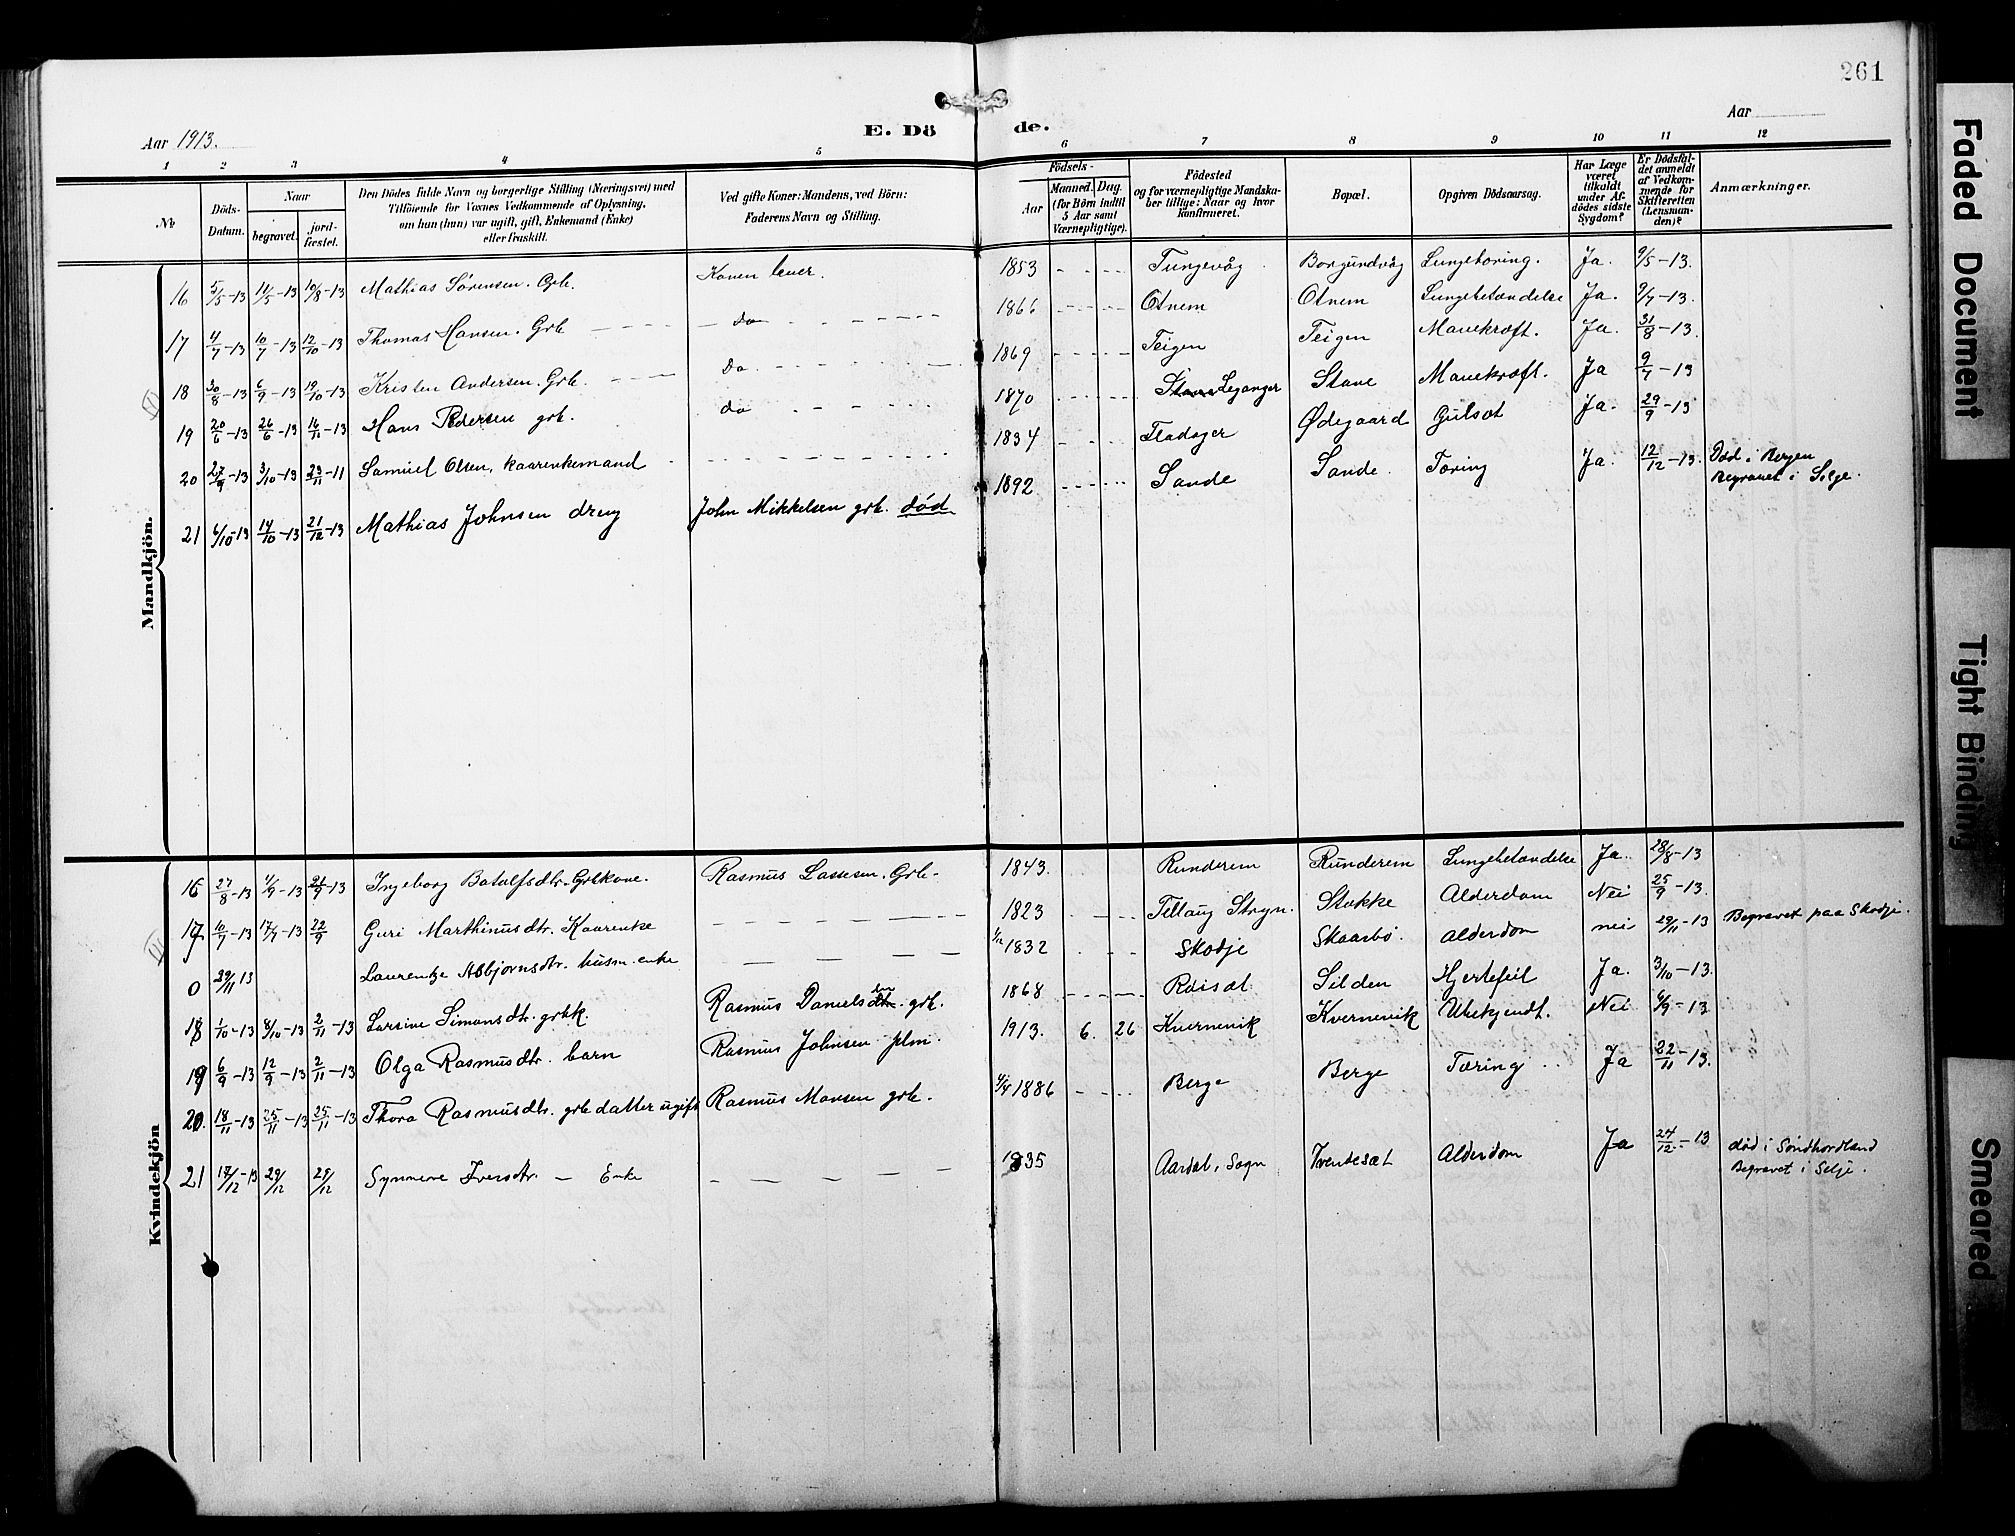 261
Aar 1913. E. Dö de. Aar
1 2 3 4 5 6 7 8 9 10 11 12
No Döds-Datum. Naar begravet. jordfæstet. Den Dödes fulde Navn og borgerlige Stilling (Næringsvei) med Tilföiende for Voxnes Vedkommende af Oplysning, om hun (hun) var ugift, gift, Enkemand (Enke) eller fraskilt. Ved gifte Koner: Mandens, ved Börn: Faderens Navn og Stilling. Födsels- Aar Maaned. Dag. (for Börn indtil 5 Aar samt Værnepligtige). Födested og for værnepligtige Mandskaber tillige: Naar og hvor konfirmeret. Bopæl. Opgiven Dödsaarsag. Har Læge været tilkaldt under Afdödes sidste Sygdom? Er Dödsfaldet anmeldt af Vedkommende for Skifteretten (Lensmanden)? Anmærkninger.
Mandkjön.
16 5/5-13 11/5-13 10/8-13 Mathias Sørensen. Grb. Konen lever. 1853 Tungevåg Borgundvåg Lungetæring. Ja. 9/5-13.
17 4/7-13 10/7-13 12/10-13 Thomas Hansen. Grb Do 1866 Otnem Otnem Lungebetændelse Ja. 9/7-13.
18 30/8-13 6/9-13 19/10-13 Kristen Andersen. Grb. Do 1869 Teigen Teigen Mavekræft. Ja. 31/8-13.
19 20/6-13 26/6-13 16/11-13 Hans Pedersen grb. do 1870 Stave Leganger Stave Mavekræft. Ja 9/7-13
20 27/9-13 3/10-13 23/11-11 Samuel Olsen, kaarenkemand 1834 Fladager Ødegaard Gulsot Ja. 29/9-13
21 6/10-13 14/10-13 21/12-13 Mathias Johnsen dreng John Mikkelsen grb. død 1892 Sande Sande. Tæring Ja. 12/12-13. Død i Bergen
Begravet i Selje.
Kvindekjön
16 27/8-13 4/9-13 21/9-13 Ingeborg Botolfsdtr. Grbkone. Rasmus Lassesen. Grb. 1843. Runderem Runderem Lungebetændelse Ja. 28/8-13
17 10/7-13 17/7-13 22/9 Guri Marthinusdtr. Kaarenke 1823 Tillaug Stryn. Stokke Alderdom Nei 25/9-13.
0 29/11 13 Laurentze Asbjørnsdtr. husm. enke 1/12 1832 Skodje Skaarbø. Alderdom nei 29/11-13 Begravet paa Skodje.
18 1/10-13 8/10-13 2/11-13 Larsine Simonsdtr. grbk. Rasmus Danielsdtr.sen grb. 1868 Røisæt Silden Hjertefeil Ja. 3/10-13.
19 6/9-13 12/9-13 2/11-13 Olga Rasmusdtr. barn Rasmus Johnsen plm. 1913. 6. 26 Kvernevik Kvernevik Ubekjendt. Nei 6/9-13
20. 18/11-13 25/11-13 25/11-13 Thora Rasmusdtr. grb datter ugift Rasmus Monsen grb. 4/4 1886 Berge Berge Tæring Ja 22/11-13.
21 17/12-13 29/12 29/12 Synneve Iversdtr. — Enke 1835 Aardal, Sogn Tventesæt Alderdom Ja 24/12-13 død i Søndhordland
Begravet i Selje.
Faded Document
Tight Binding
Smeared